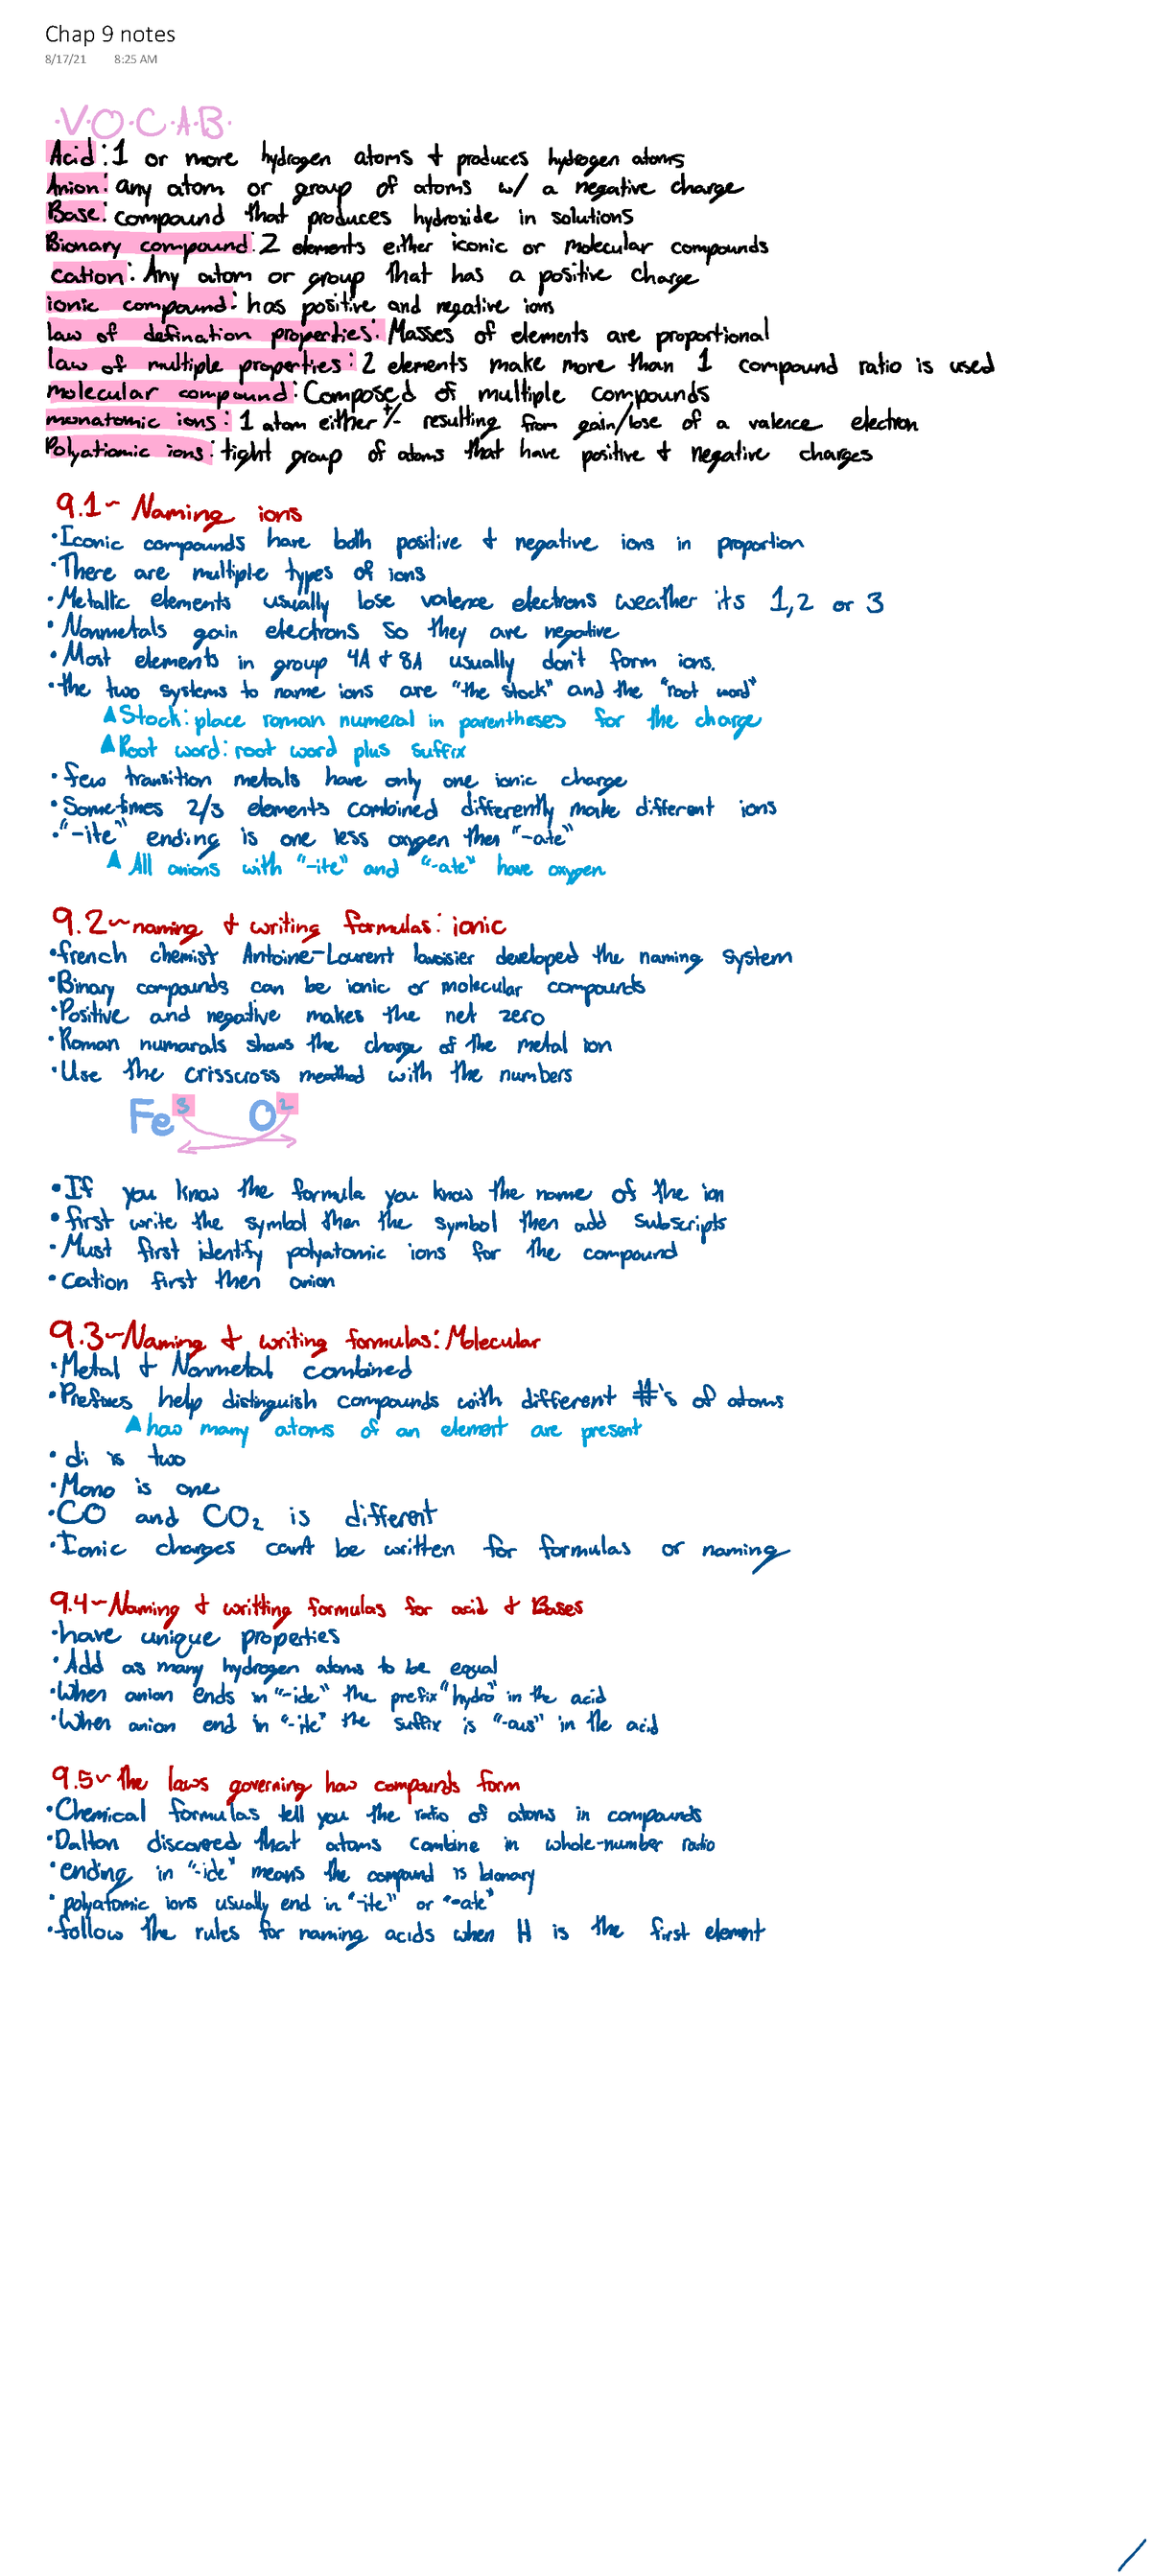 Chap 9 notes
8/17/21 8:25 AM
·V·O·C·A·B·
Acid: 1 or more hydrogen atoms + produces hydrogen atoms
Anion: any atom or group of atoms w/ a negative charge
Base: compound that produces hydroxide in solutions
Bionary compound: 2 elements either iconic or molecular compounds
cation: Any atom or group that has a positive charge
ionic compound: has positive and negative ions
law of defination properties: Masses of elements are proportional
law of multiple properties: 2 elements make more than 1 compound ratio is used
molecular compound: Composed of multiple compounds
monatomic ions: 1 atom either +/- resulting from gain/lose of a valence electron
Polyatiomic ions: tight group of atoms that have positive + negative charges
9.1~ Naming ions
·Iconic compounds have both positive + negative ions in proportion
·There are multiple types of ions
·Metallic elements usually lose valence electrons weather its 1,2 or 3
·Nonmetals gain electrons so they are negative
·Most elements in group 4A + 8A usually don't form ions.
·the two systems to name ions are "the stock" and the "root word"
▲Stock: place roman numeral in parentheses for the charge
▲Root word: root word plus suffix
·few transition metals have only one ionic charge
·Sometimes 2/3 elements combined differently make different ions
·"-ite" ending is one less oxygen then "-ate"
▲All anions with "-ite" and "-ate" have oxygen
9.2~naming + writing formulas: ionic
·french chemist Antoine-Lourent lavoisier developed the naming system
·Binary compounds can be ionic or molecular compounds
·Positive and negative makes the net zero
·Roman numarals shows the charge of the metal ion
·Use the crisscross meathod with the numbers
Fe 3 O 2
·If you know the formula you know the name of the ion
·first write the symbol then the symbol then add subscripts
·Must first identify polyatomic ions for the compound
·cation first then anion
9.3~Naming + writing formulas: Molecular
·Metal + Nonmetal combined
·Prefixes help distinguish compounds with different #'s of atoms
▲how many atoms of an element are present
·di is two
·Mono is one
·CO and CO₂ is different
·Ionic charges cant be written for formulas or naming
9.4~Naming + writting formulas for acid + Bases
·have unique properties
·Add as many hydrogen atoms to be equal
·When anion ends in "-ide" the prefix "hydro" in the acid
·When anion end in "-ite" the suffix is "-ous" in the acid
9.5~the laws governing how compounds form
·Chemical formulas tell you the ratio of atoms in compounds
·Dalton discovered that atoms combine in whole-number ratio
·ending in "-ide" means the compound is bionary
·polyatomic ions usually end in "-ite" or "-ate"
·follow the rules for naming acids when H is the first element